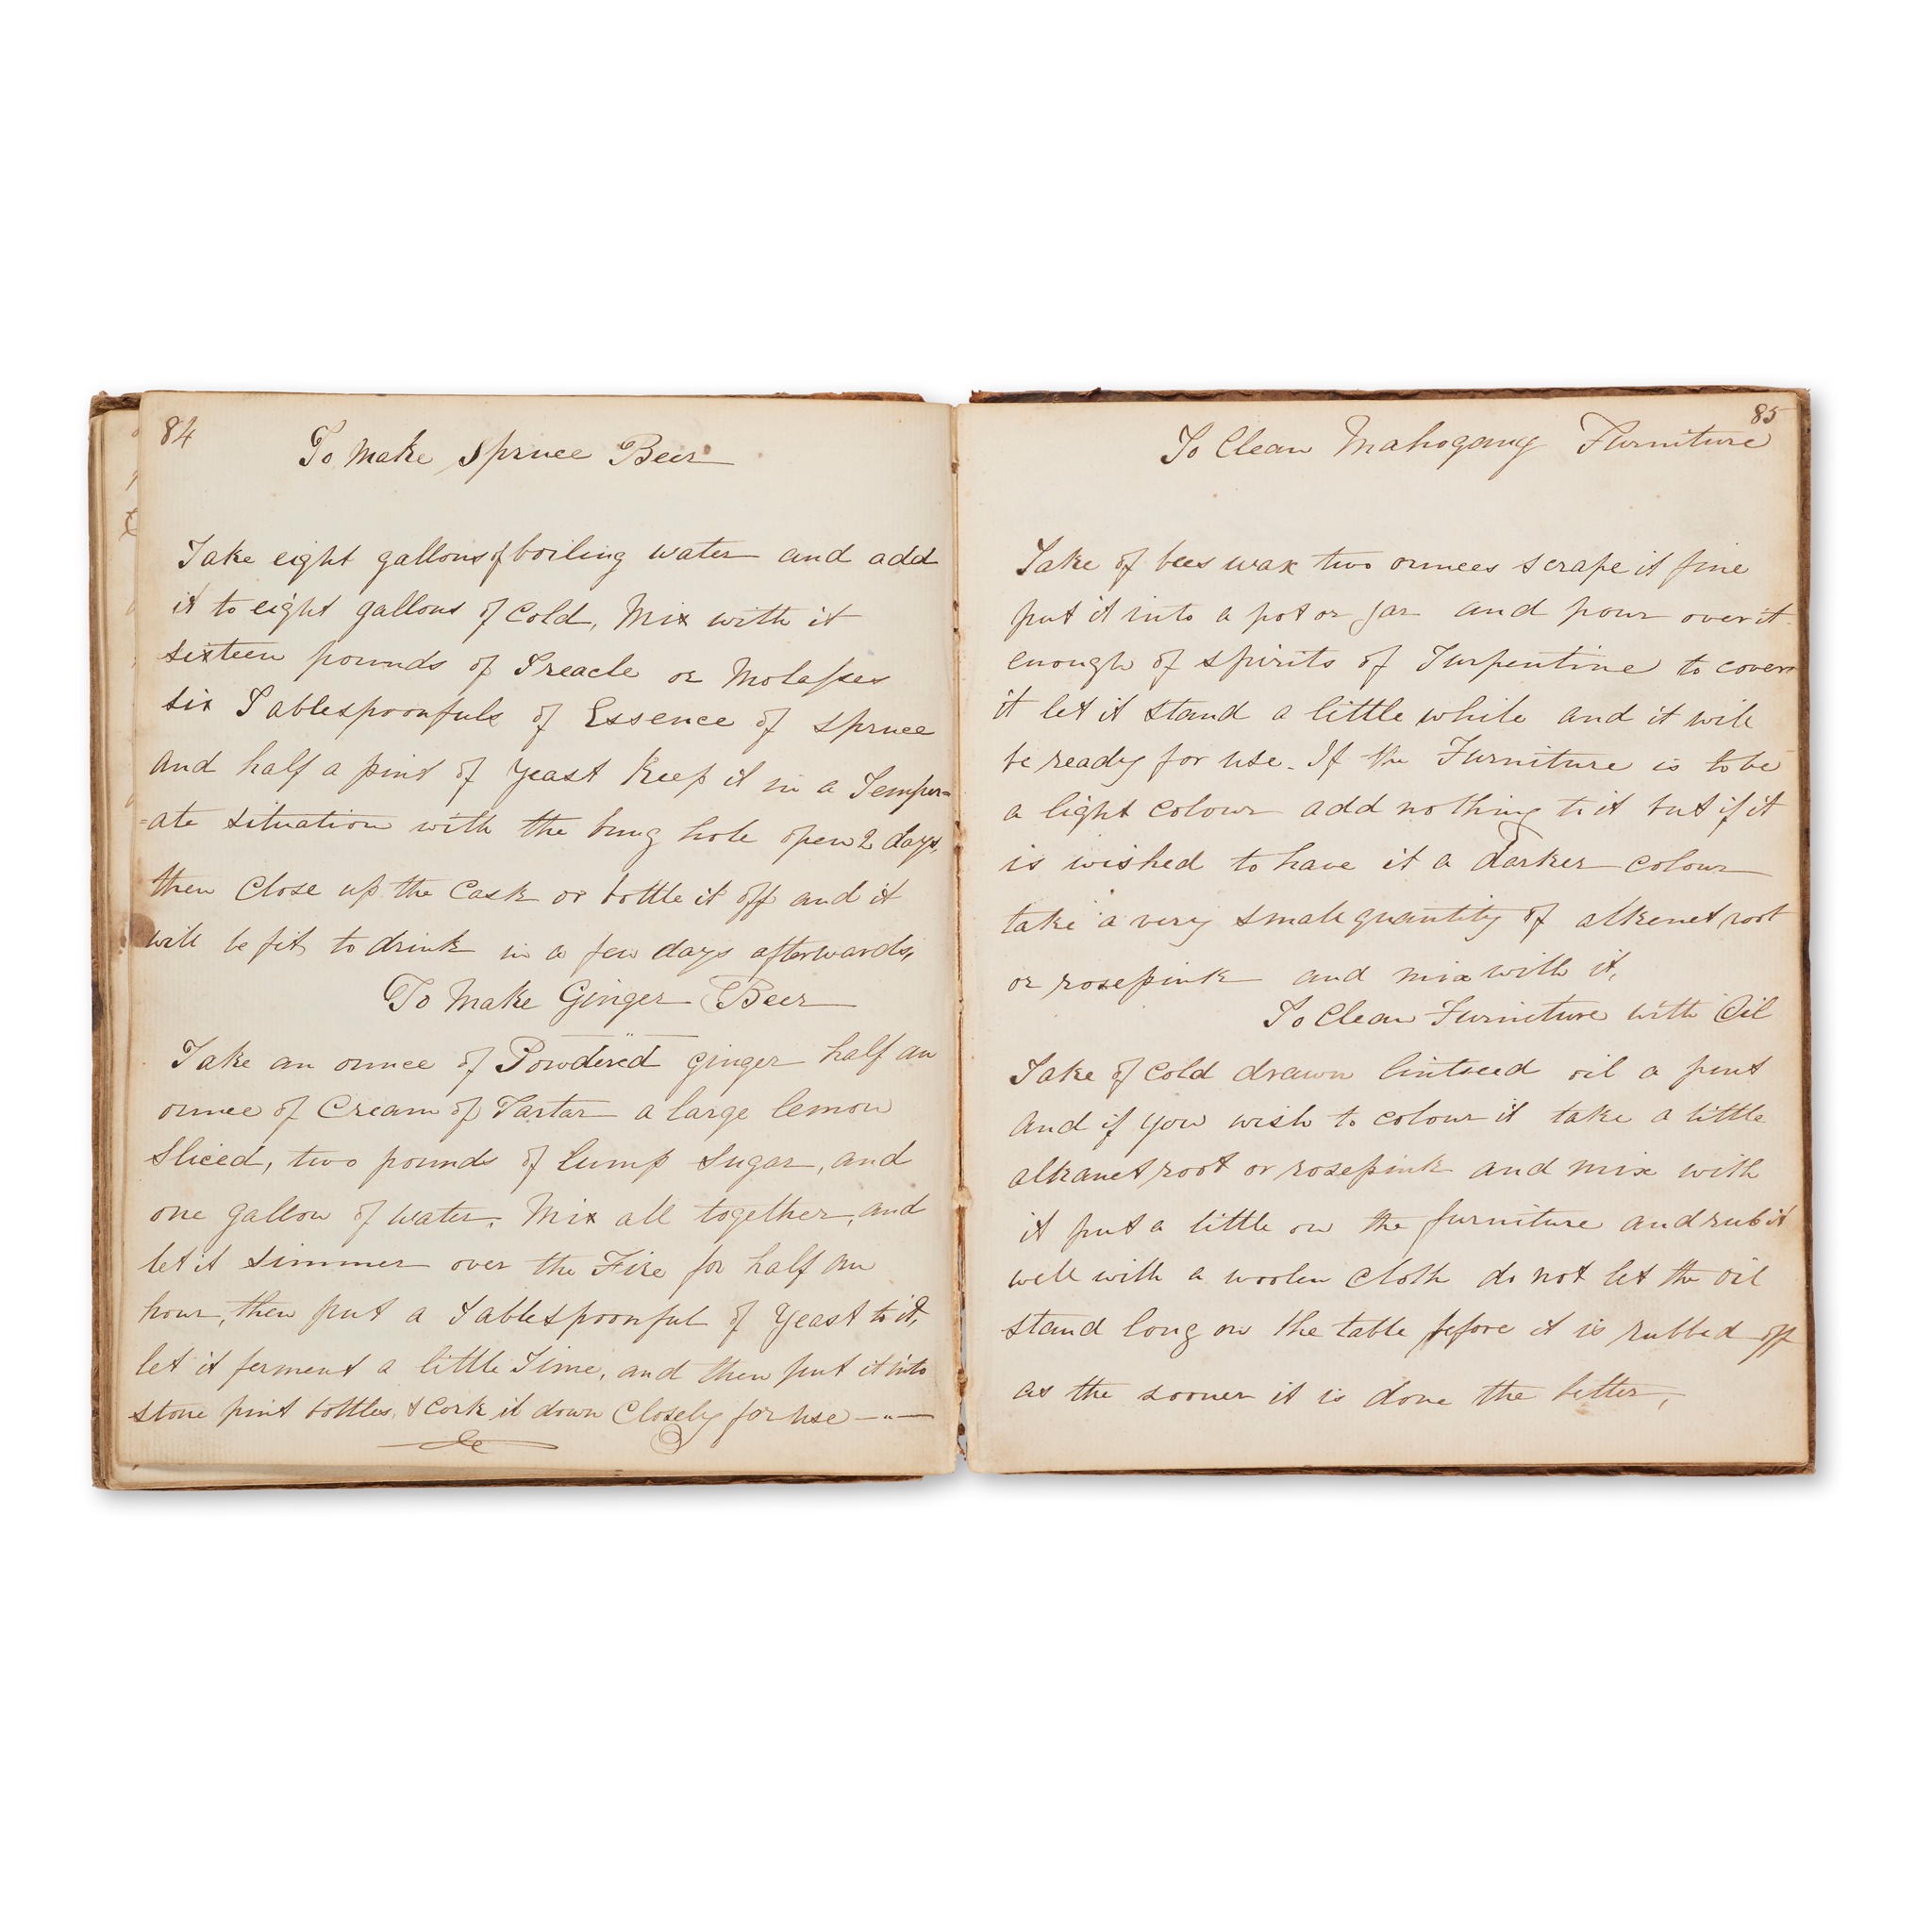 84
To Make Spruce Beer
Take eight gallons of boiling water and add
it to eight gallons of Cold, Mix with it
sixteen pounds of Treacle or Molasses
six Tablespoonfuls of Essence of spruce
and half a pint of Yeast Keep it in a Temper=
=ate situation with the bung hole open 2 days,
then Close up the Cask or bottle it off and it
will be fit to drink in a few days afterwards,
To Make Ginger Beer
Take an ounce of Powdered ginger half an
ounce of Cream of Tartar a large lemon
Sliced, two pounds of lump sugar, and
one gallon of water. Mix all together, and
let it simmer over the Fire for half an
hour, then put a Tablespoonful of Yeast to it,
let it ferment a little Time, and then put it into
stone pint bottles, & Cork it down Closely for use
85
To Clean Mahogany Furniture
Take of bees wax two ounces scrape it fine
put it into a pot or jar and pour over it
enough of spirits of Turpentine to cover
it let it stand a little while and it will
be ready for use. If the Furniture is to be
a light colour add nothing to it but if it
is wished to have it a darker colour
take a very small quantity of alkenet root
or rosepink and mix with it,
To Clean Furniture with Oil
Take of cold drawn lintseed oil a pint
and if you wish to colour it take a little
alkanet root or rosepink and mix with
it put a little on the furniture and rub it
well with a woolen cloth do not let the oil
stand long on the table before it is rubbed off
as the sooner it is done the better,